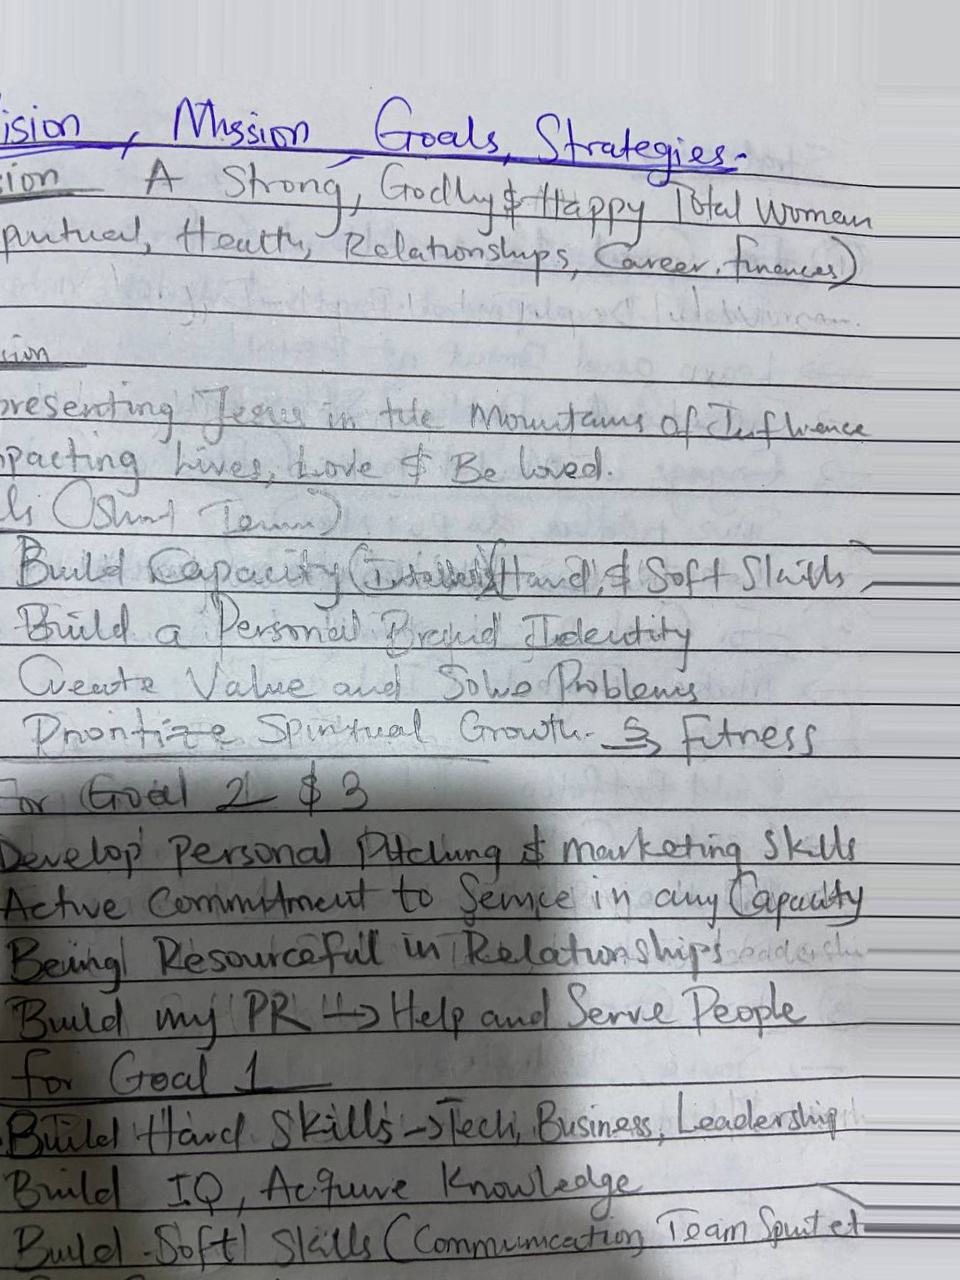 ision, Mission Goals, Strategies.
sion A Strong, Godly & Happy Total Woman
piritual, Health, Relationships, Career, finances)
sion
presenting Jesus in the Mountains of Influence
pacting Lives, Love & Be loved.
ls (Short Term)
Build Capacity (Intellect) (Hard, & Soft Skills
Build a Personal Brand Identity
Create Value and Solve Problems
Prioritize Spiritual Growth. & Fitness
For Goal 2 & 3
Develop personal Pitching & marketing skills
Active Commitment to Service in any Capacity
Being Resourceful in Relationships
Build my PR → Help and Serve People
for Goal 1
Build Hard Skills → Tech, Business, Leadership
Build IQ, Acquire Knowledge
Build Soft Skills (Communication Team Spirit et